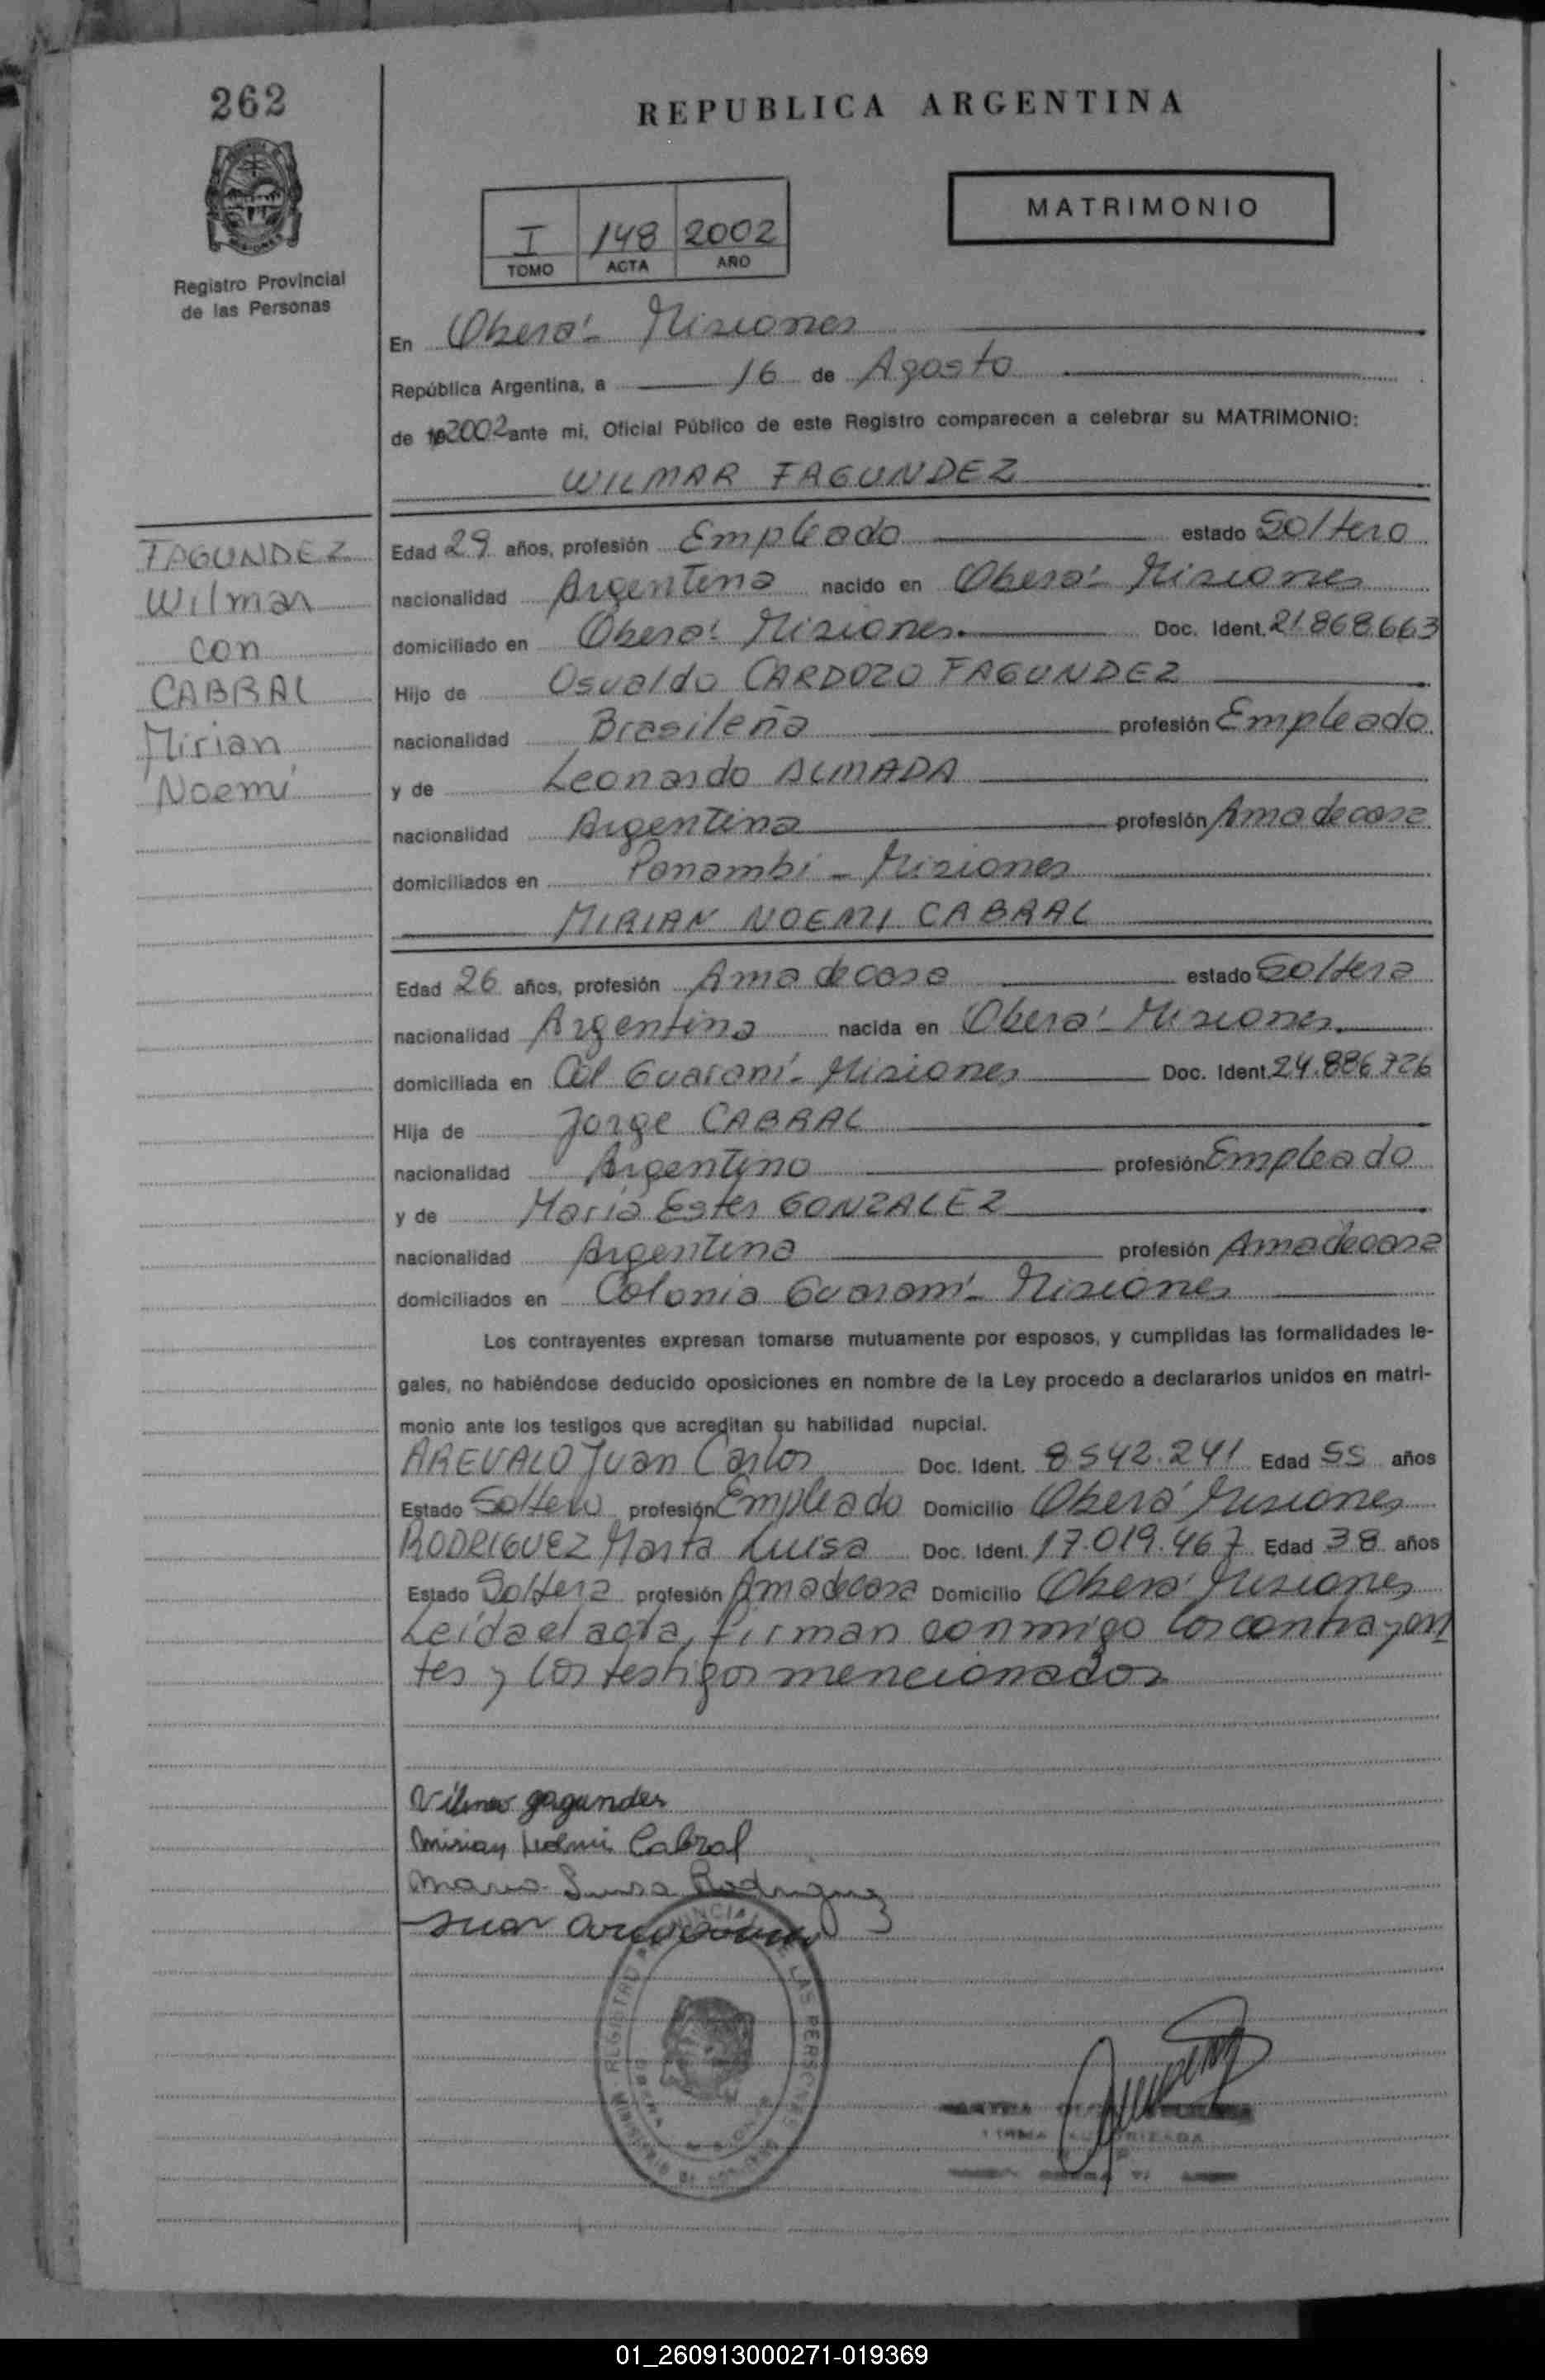 262
REPUBLICA ARGENTINA
MATRIMONIO
I 148 2002
TOMO ACTA AÑO
Registro Provincial
de las Personas
En Oberá - Misiones
República Argentina, a 16 de Agosto
de 192002 ante mi, Oficial Público de este Registro comparecen a celebrar su MATRIMONIO:
WILMAR FAGUNDEZ
FAGUNDEZ
Wilmar
con
CABRAL
Mirian
Noemí
Edad 29 años, profesión Empleado estado Soltero
nacionalidad Argentina nacido en Oberá - Misiones
domiciliado en Oberá - Misiones. Doc. Ident. 21.868.663
Hijo de Osvaldo CARDOZO FAGUNDEZ
nacionalidad Brasileña profesión Empleado
y de Leonardo ALMADA
nacionalidad Argentina profesión Ama de casa
domiciliados en Panambí - Misiones
MIRIAN NOEMI CABRAL
Edad 26 años, profesión Ama de casa estado Soltera
nacionalidad Argentina nacida en Oberá - Misiones.
domiciliada en Col Guaraní - Misiones Doc. Ident. 24.886.726
Hija de Jorge CABRAL
nacionalidad Argentino profesión Empleado
y de María Ester GONZALEZ
nacionalidad Argentina profesión Ama de casa
domiciliados en Colonia Guaraní - Misiones
Los contrayentes expresan tomarse mutuamente por esposos, y cumplidas las formalidades le-
gales, no habiéndose deducido oposiciones en nombre de la Ley procedo a declararlos unidos en matri-
monio ante los testigos que acreditan su habilidad nupcial.
AREVALO Juan Carlos Doc. Ident. 8.542.241 Edad 55 años
Estado Soltero profesión Empleado Domicilio Oberá Misiones
RODRIGUEZ Marta Luisa Doc. Ident. 17.019.467 Edad 38 años
Estado Soltera profesión Ama de casa Domicilio Oberá Misiones
Leída el acta, firman conmigo los contrayen
tes y los testigos mencionados
Mirian Noemi Cabral
Luisa Rodriguez
Juan
REGISTRO PROVINCIAL DE LAS PERSONAS
FIRMA AUTORIZADA
01_260913000271-019369